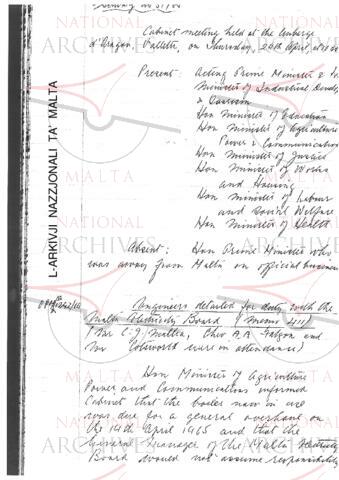 Cabinet meeting held at the Auberge
d'Aragon, Valletta, on Thursday, 20th April, at
Present: Acting Prime Minister &
Minister of Industrial Devel
& Tourism
Hon Minister of Education
Hon Minister of Agriculture
Power & Communication
Hon Minister of Justice
Hon Minister of Works
and Housing
Hon Minister of Labour
and Social Welfare
Hon Minister of Health
Absent: Hon Prime Minister who
was away from Malta on official business
Engineers detailed for duty with the
Malta Electricity Board (Memo 411)
(Mr C. J. Mallia, A. A. and
Mr were in attendance)
Hon Minister of Agriculture
Power and Communications informed
Cabinet that the boiler now in use
was due for a general overhaul on
the 14th April 1965 and that the
General Manager of the Malta Electricity
Board would not assume responsibility
L-ARKIVJI NAZZJONALI TA' MALTA
NATIONAL
ARCHIVES